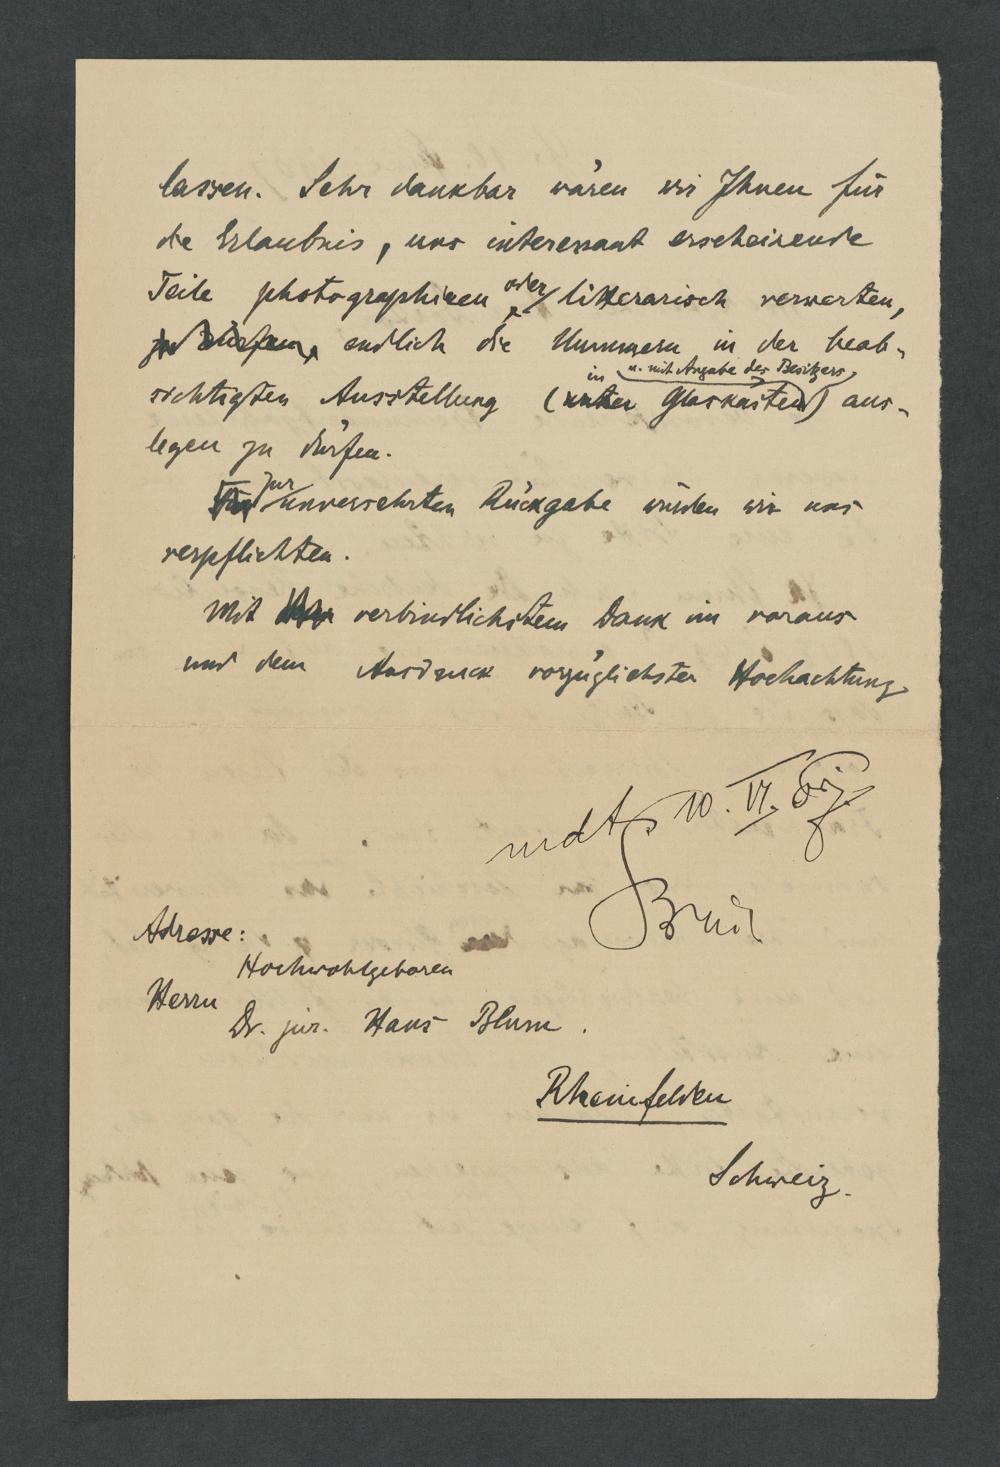 lassen. Sehr dankbar wären wir Ihnen für
die Erlaubnis, uns interessant erscheinende
Teile photographieren oder litterarisch verwerten,
zu dürfen, endlich die Nummern in der beab-
sichtigten Ausstellung (unter in Glaskästen u. mit Angabe des Besitzers) aus-
legen zu dürfen.
Für zur unversehrten Rückgabe würden wir uns
verpflichten.
Mit verbindlichstem Dank im voraus
und dem Ausdruck vorzüglichster Hochachtung
mdt. 10. VI.
Adresse:
Hochwohlgeboren
Herrn
Dr. jur. Hans Blum.
Rheinfelden
Schweiz.